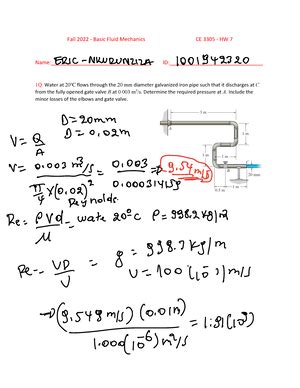 Fall 2022 - Basic Fluid Mechanics CE 3305 - HW 7
Name: ERIC-NKURUNZIZA ID: 1001949320
1Q: Water at 20°C flows through the 20 mm diameter galvanized iron pipe such that it discharges at C
from the fully opened gate valve B at 0.003 m³/s. Determine the required pressure at A. Include the
minor losses of the elbows and gate valve.
D=20mm
D=0,02m
V= Q/A
V= 0.003 m³/s / π/4 x(0.02)² = 0.003 / 0.000314159 → 9.54 m/s
Reynolds
Re= ρVd/μ - wate 20°C ρ=998.2 kg/m
Re= VD/V = ρ=998.7 kg/m
V=1.00(10⁻⁶) m/s
→ (9.549 m/s)(0.01m) / 1.000(10⁻⁶) m²/s = 1.91(10⁵)